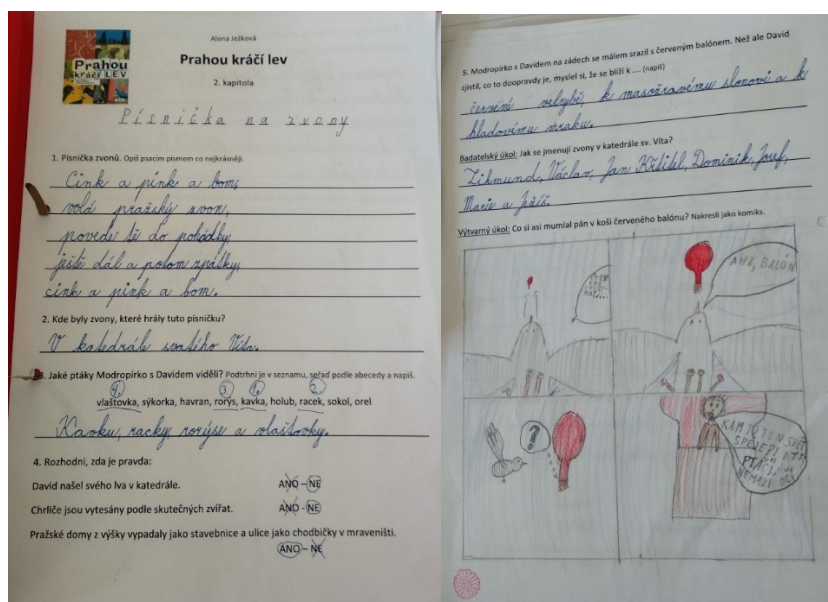 Alena Ježková
Prahou
kráčí LEV
Prahou kráčí lev
2. kapitola
Písnička na zvony
1. Písnička zvonů. Opiš psacím písmem co nejkrásněji.
Cink a pink a bom,
volá pražský zvon,
povede tě do pohádky,
ještě dál a potom zpátky,
cink a pink a bom.
2. Kde byly zvony, které hrály tuto písničku?
V katedrále svatého Víta.
3. Jaké ptáky Modropírko s Davidem viděli? Podtrhni je v seznamu, seřaď podle abecedy a napiš.
4. 3. 1. 2.
vlaštovka, sýkorka, havran, rorýs, kavka, holub, racek, sokol, orel
Kavku, racky, rorýse a vlaštovky.
4. Rozhodni, zda je pravda:
David našel svého lva v katedrále. ANO – NE
Chrliče jsou vytesány podle skutečných zvířat. ANO – NE
Pražské domy z výšky vypadaly jako stavebnice a ulice jako chodbičky v mraveništi.
ANO – NE
5. Modropírko s Davidem na zádech se málem srazil s červeným balónem. Než ale David
zjistil, co to doopravdy je, myslel si, že se blíží k .... (napiš)
červené velrybě, k masožravému slonovi a k
hladovému mraku.
Badatelský úkol: Jak se jmenují zvony v katedrále sv. Víta?
Zikmund, Václav, Jan Křtitel, Dominik, Josef,
Marie a Ježíš.
Výtvarný úkol: Co si asi mumlal pán v koši červeného balónu? Nakresli jako komiks.
AHA, BALÓN
?
KAM TO TEN SVĚT
SPĚJE?! I TI
PTÁCI
NEMAJÍ OČI